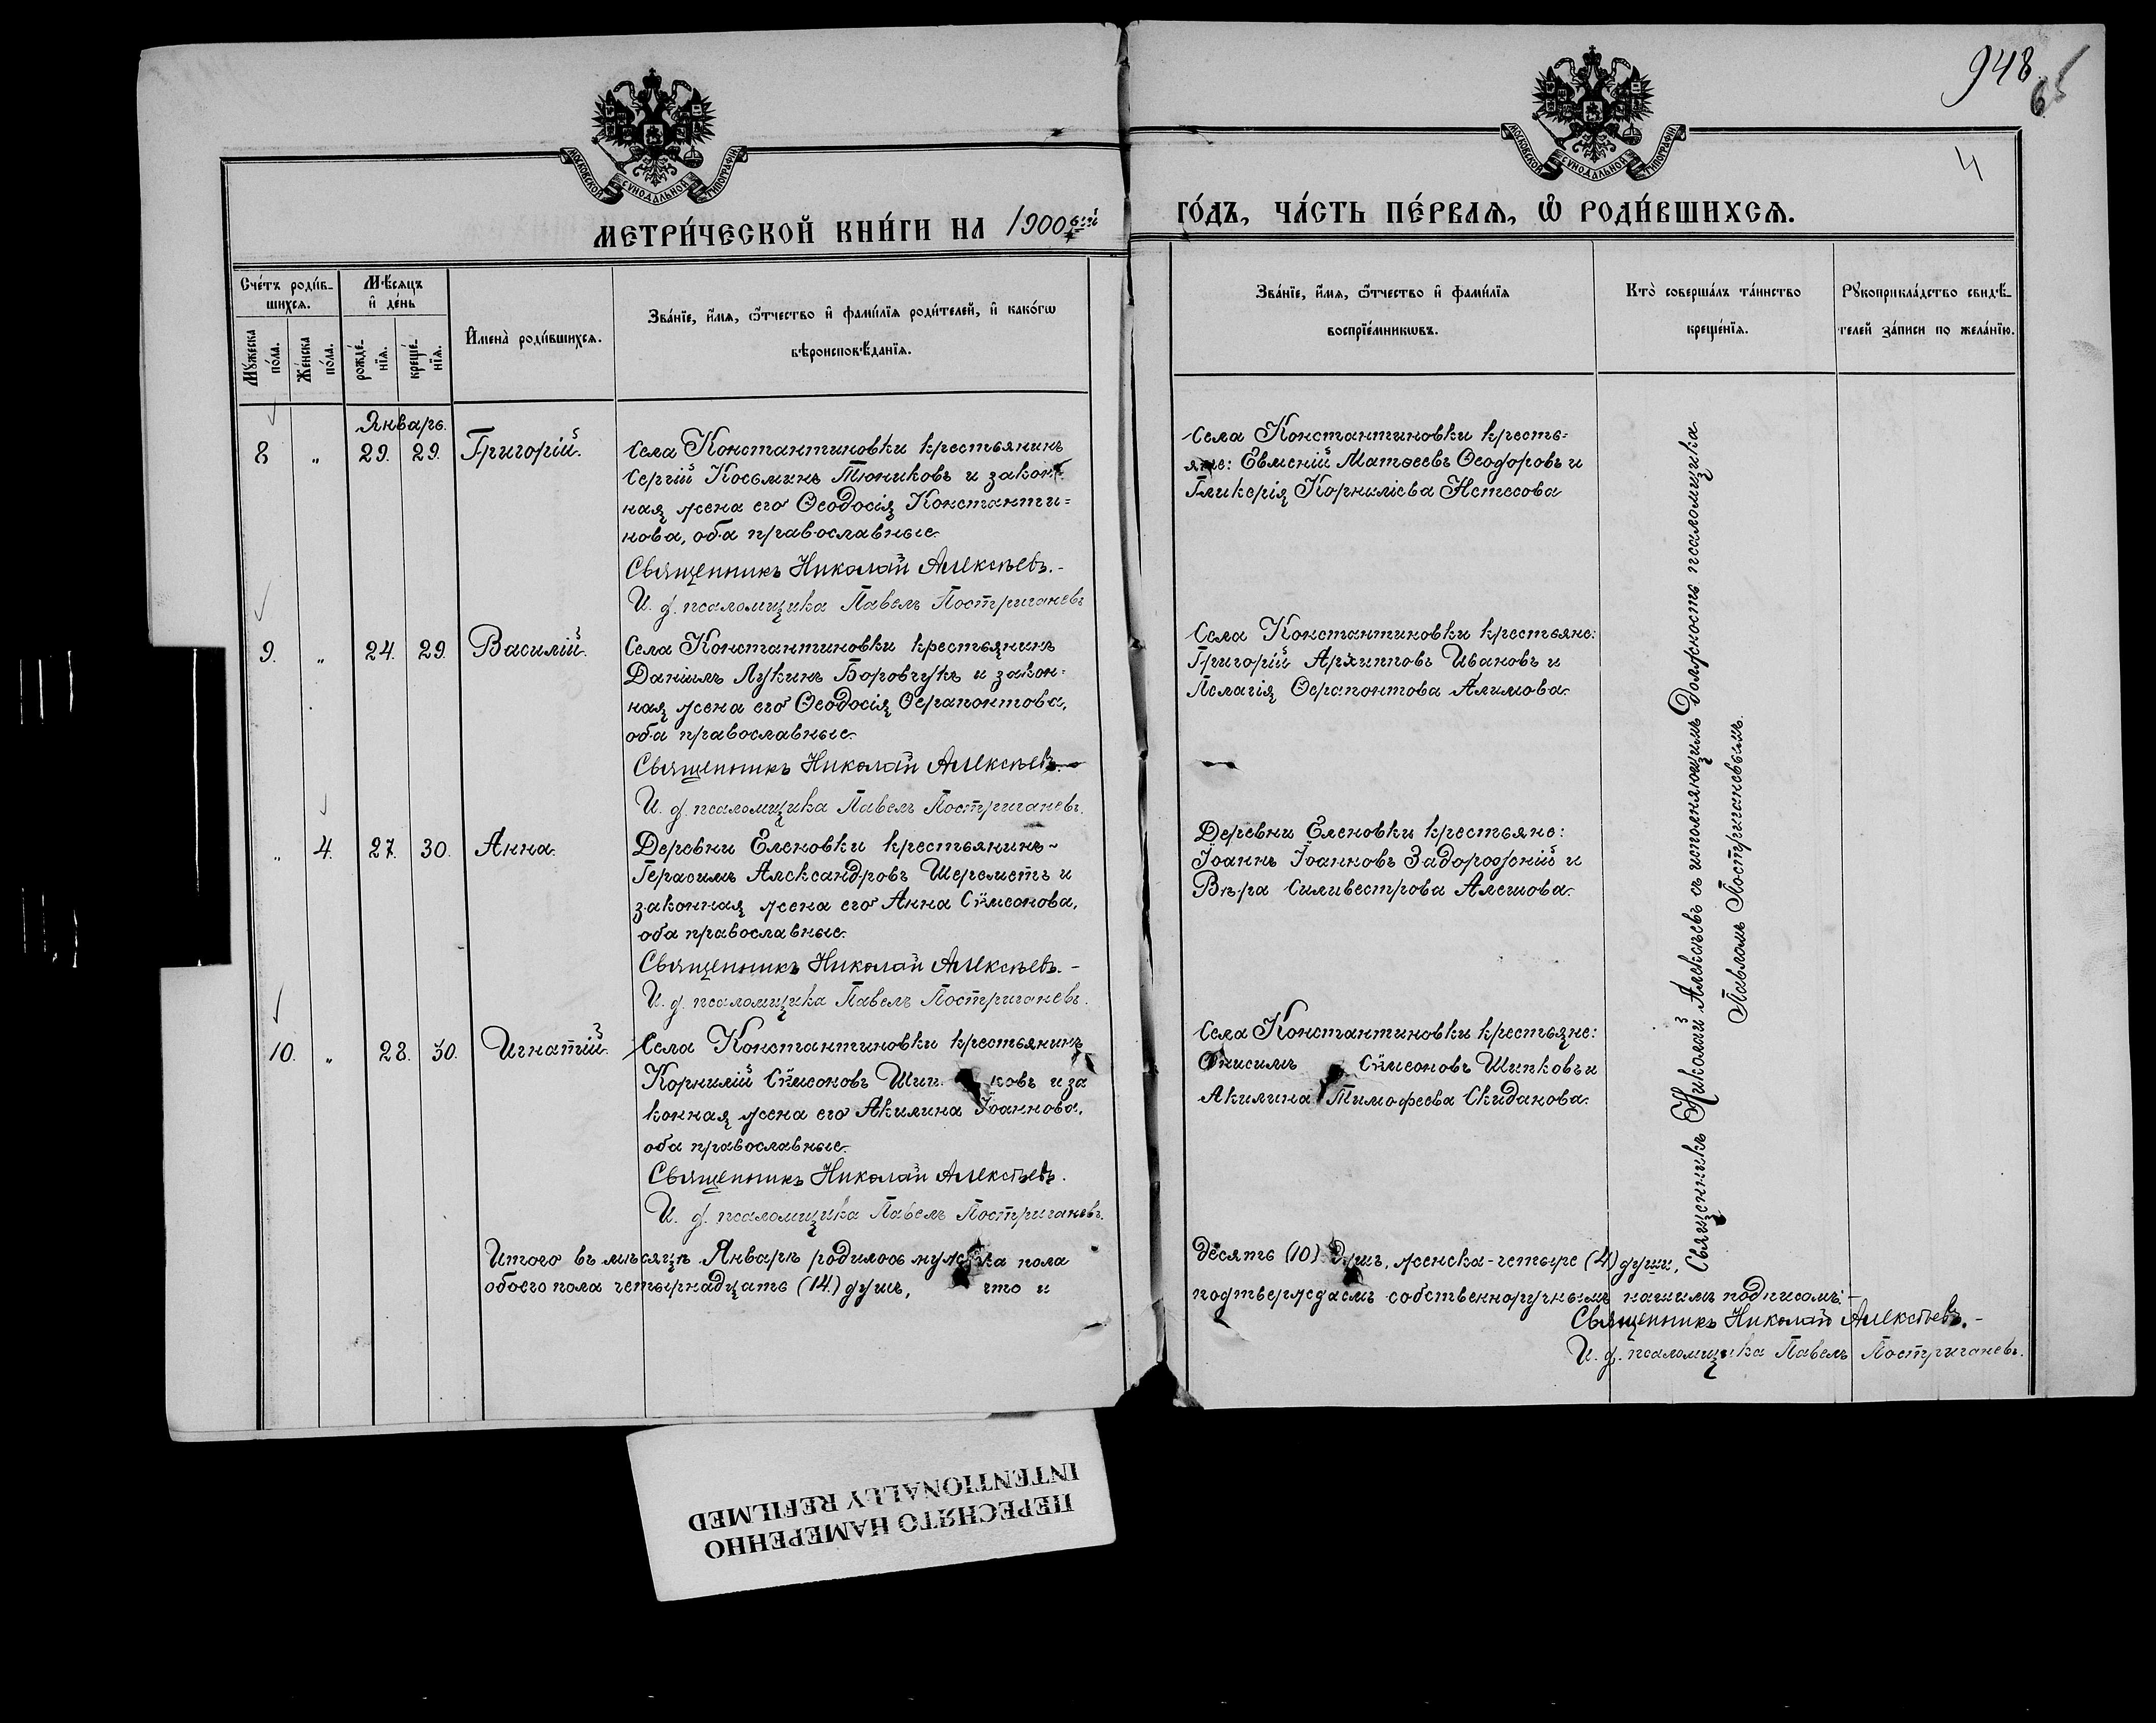 948
65
4
МОСКОВСКОЙ СУНОДАЛЬНОЙ ТИПОГРАФІИ
МОСКОВСКОЙ СУНОДАЛЬНОЙ ТИПОГРАФІИ
МЕТРИ́ЧЕСКОЙ КНИ́ГИ НА 1900ый
ГО́ДЪ, ЧА́СТЬ ПЕ́РВАѦ, Ѽ РОДИ́ВШИХСѦ.
Сче́тъ роди́в-
шихсѧ.
Мѣ́сѧцъ
и҆ де́нь
Мꙋ́жеска по́ла.
Же́нска по́ла.
рожде́-нїѧ.
креще́-нїѧ.
И҆мена̀ роди́вшихсѧ.
Зва́нїе, и҆́мѧ, ѻ҆́тчество и҆ фами́лїѧ роди́телей, и҆ како́гѡ
вѣроисповѣ́данїѧ.
Зва́нїе, и҆́мѧ, ѻ҆́тчество и҆ фами́лїѧ
воспрїе́мникѡвъ.
Кто̀ соверша́лъ та́инство
креще́нїѧ.
Рꙋкоприкла́дство свидѣ́-
телей за́писи по жела́нїю.
Январь.
8 „ 29. 29. Григорій.
Села Константиновки крестьянинъ
Сергій Косьминъ Тюниковъ и закон-
ная жена его Ѳеодосія Константи=
нова, оба православные.
Священникъ Николай Алексѣевъ.-
И. д. псаломщика Павелъ Постриганевъ
Села Константиновки кресть=
яне: Евменій Матѳеевъ Ѳеодоровъ и
Гликерія Корниліева Нетесова
9. „ 24. 29. Василій.
Села Константиновки крестьянинъ
Даніилъ Лукинъ Боровчукъ и закон-
ная жена его Ѳеодосія Ѳерапонтова,
оба православные.
Священникъ Николай Алексѣевъ.
И. д. псаломщика Павелъ Постриганевъ.
Села Константиновки крестьяне:
Григорій Архипповъ Ивановъ и
Пелагія Ѳерапонтова Алимова.
„ 4. 27. 30. Анна.
Деревни Еленовки крестьянинъ
Герасимъ Александровъ Шереметъ и
законная жена его Анна Сѵмеонова,
оба православные.
Священникъ Николай Алексѣевъ.-
И. д. псаломщика Павелъ Постриганевъ.
Деревни Еленовки крестьяне:
Іоаннъ Іоанновъ Задорожній и
Вѣра Силивестрова Алешова.
10. „ 28. 30. Игнатій.
Села Константиновки крестьянинъ
Корнилій Сѵмеоновъ Шип ковъ и за
конная жена его Акилина Іоаннова,
оба православные.
Священникъ Николай Алексѣевъ.
И. д. псаломщика Павелъ Постриганевъ.
Села Константиновки крестьяне:
Онисимъ Сѵмеоновъ Шипковъ и
Акилина Тимофеева Скиданова.
Священникъ Николай Алексѣевъ съ исполняющимъ Должность псаломщика
Павломъ Постриганевымъ.
Итого въ мѣсяцѣ Январѣ родилось мужеска пола десять (10) Душъ, женска-четыре (4) души,
обоего пола четырнадцать (14) душъ, что и подтверждаемъ собственноручнымъ нашимъ подписомъ:-
Священникъ Николай Алексѣевъ.-
И. д. псаломщика Павелъ Постриганевъ.
ПЕРЕСНЯТО НАМЕРЕННО
INTENTIONALLY REFILMED